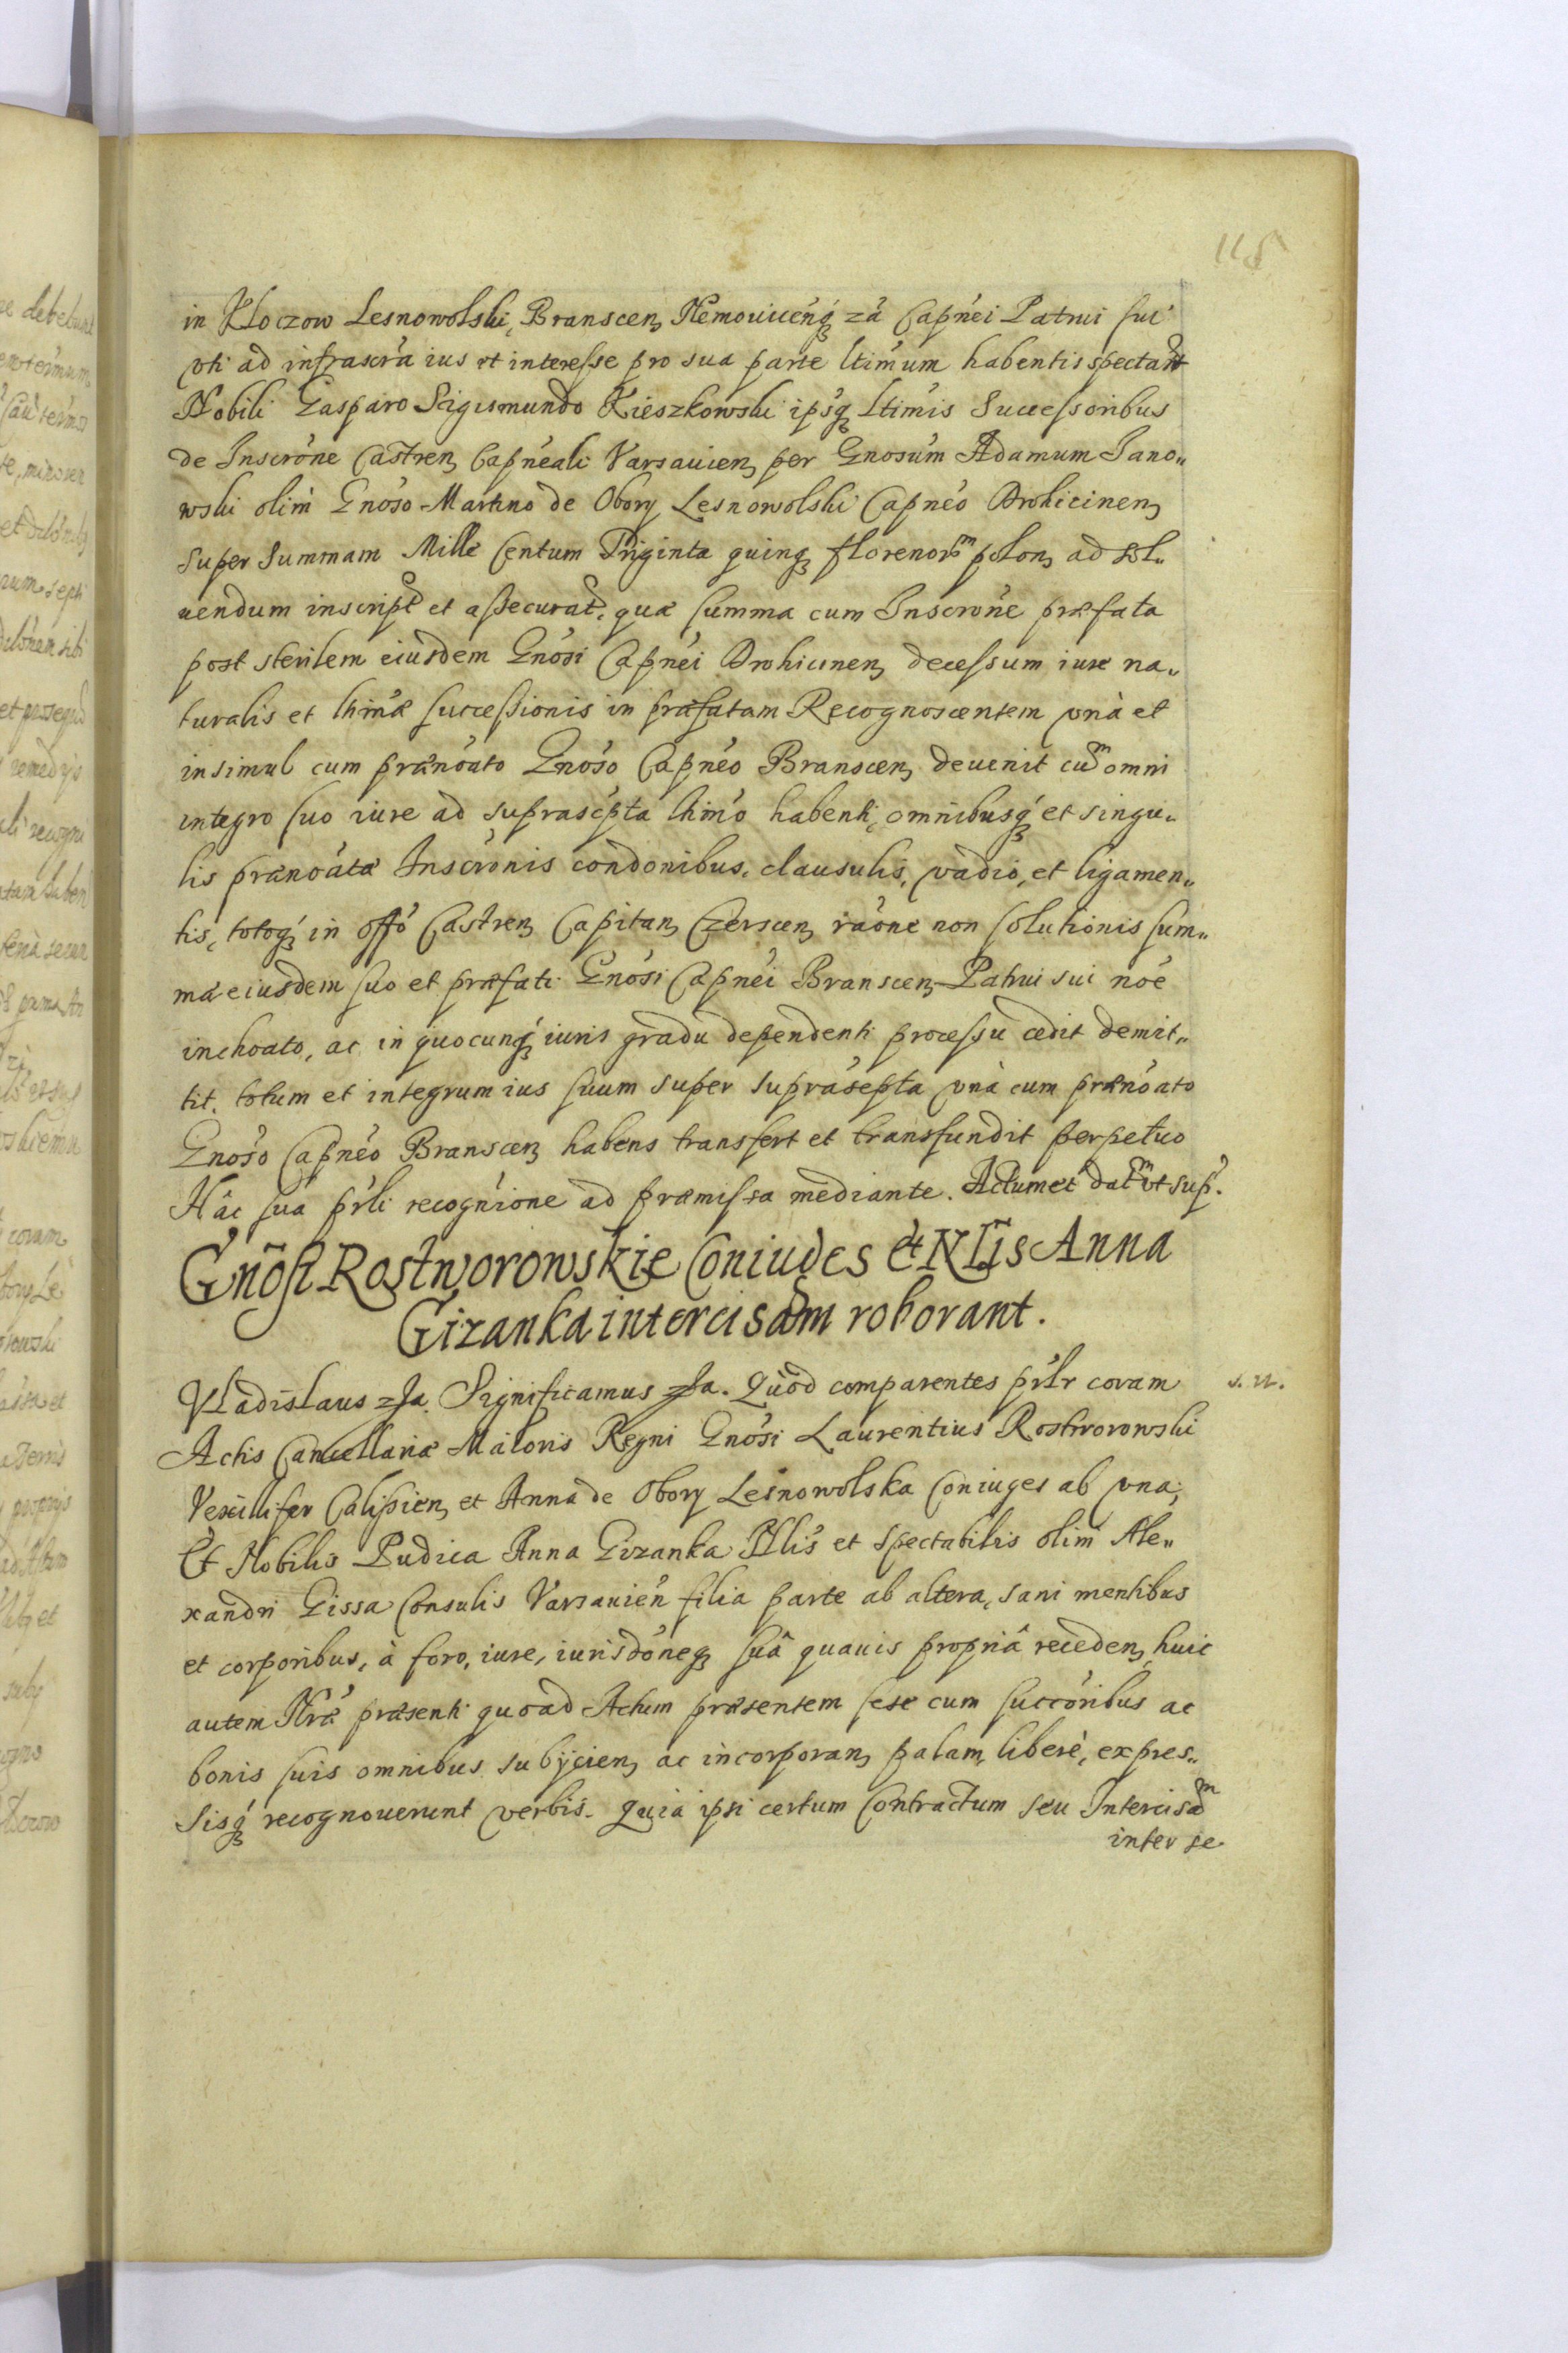 115
in Kloczow Lesnowolski, Branscen, Nemouicenq zã Capnei Patrui sui
vti ad infrascra ius et interesse pro sua parte ltimum habentis spectant
Nobili Gasparo Sigismundo Kieszkowski ipsq ltimis Successoribus
de Inscrone Castren Capneali Varsauien per Gnosum Adamum Jano„
wski olim Gnoso Martino de Obory Lesnowolski Capneo Drohicinen
super Summam Mille Centum Triginta quinq florenorm polon, ad sol„
uendum inscript et assecurat, quæ summa cum Inscrone præfata
post sterilem eiusdem Gnosi Capnei Drohicinen decessum iure na„
turalis et ltimæ successionis in præfatam Recognoscentem vnà et
insimul cum prænoato Gnoso Capneo Branscen, deuenit cum omni
integro suo iure ad suprascpta ltimo habenti, omnibusq et singu„
lis prænoatæ Inscronis condonibus, clausulis, vadio, et ligamen„
tis, totoq in offo Castren Capitan Czerscen raone non solutionis sum„
mæ eiusdem suo et præfati Gnosi Capnei Branscen Patrui sui noe
inchoato, ac in quocunq iuris gradu dependenti processu cedit demit„
tit, totum et integrum ius suum super suprascpta vnà cum prænoato
Gnoso Capneo Branscen habens transfert et transfundit perpetuo
Hâc suâ prli recognione ad præmissa mediante. Actum et datm vt sup.
Gnosi Rostworowskie Coniuges et Nlis Anna
Gizanka intercisam roborant.
Vladislaus Significamus Quod comparentes prlr coram
s. n.
Actis Cancellariæ Maioris Regni Gnosi Laurentius Rostworowski
Vexillifer Calissien, et Anna de Obory Lesnowolska Coniuges ab vna,
Et Nobilis Pudica Anna Gizanka Nlis et Spectabilis olim Ale„
xandri Gissa Consulis Varsauien filia parte ab altera, sani mentibus
et corporibus, à foro, iure, iurisdoneq suâ quauis propriâ receden, huic
autem Nræ præsenti quoad Actum præsentem sese cum succoribus ac
bonis suis omnibus subÿcien, ac incorporan, palam, liberè, expres„
sisq recognouerunt verbis. Quia ipsi certum Contractum seu Intercisam
inter se